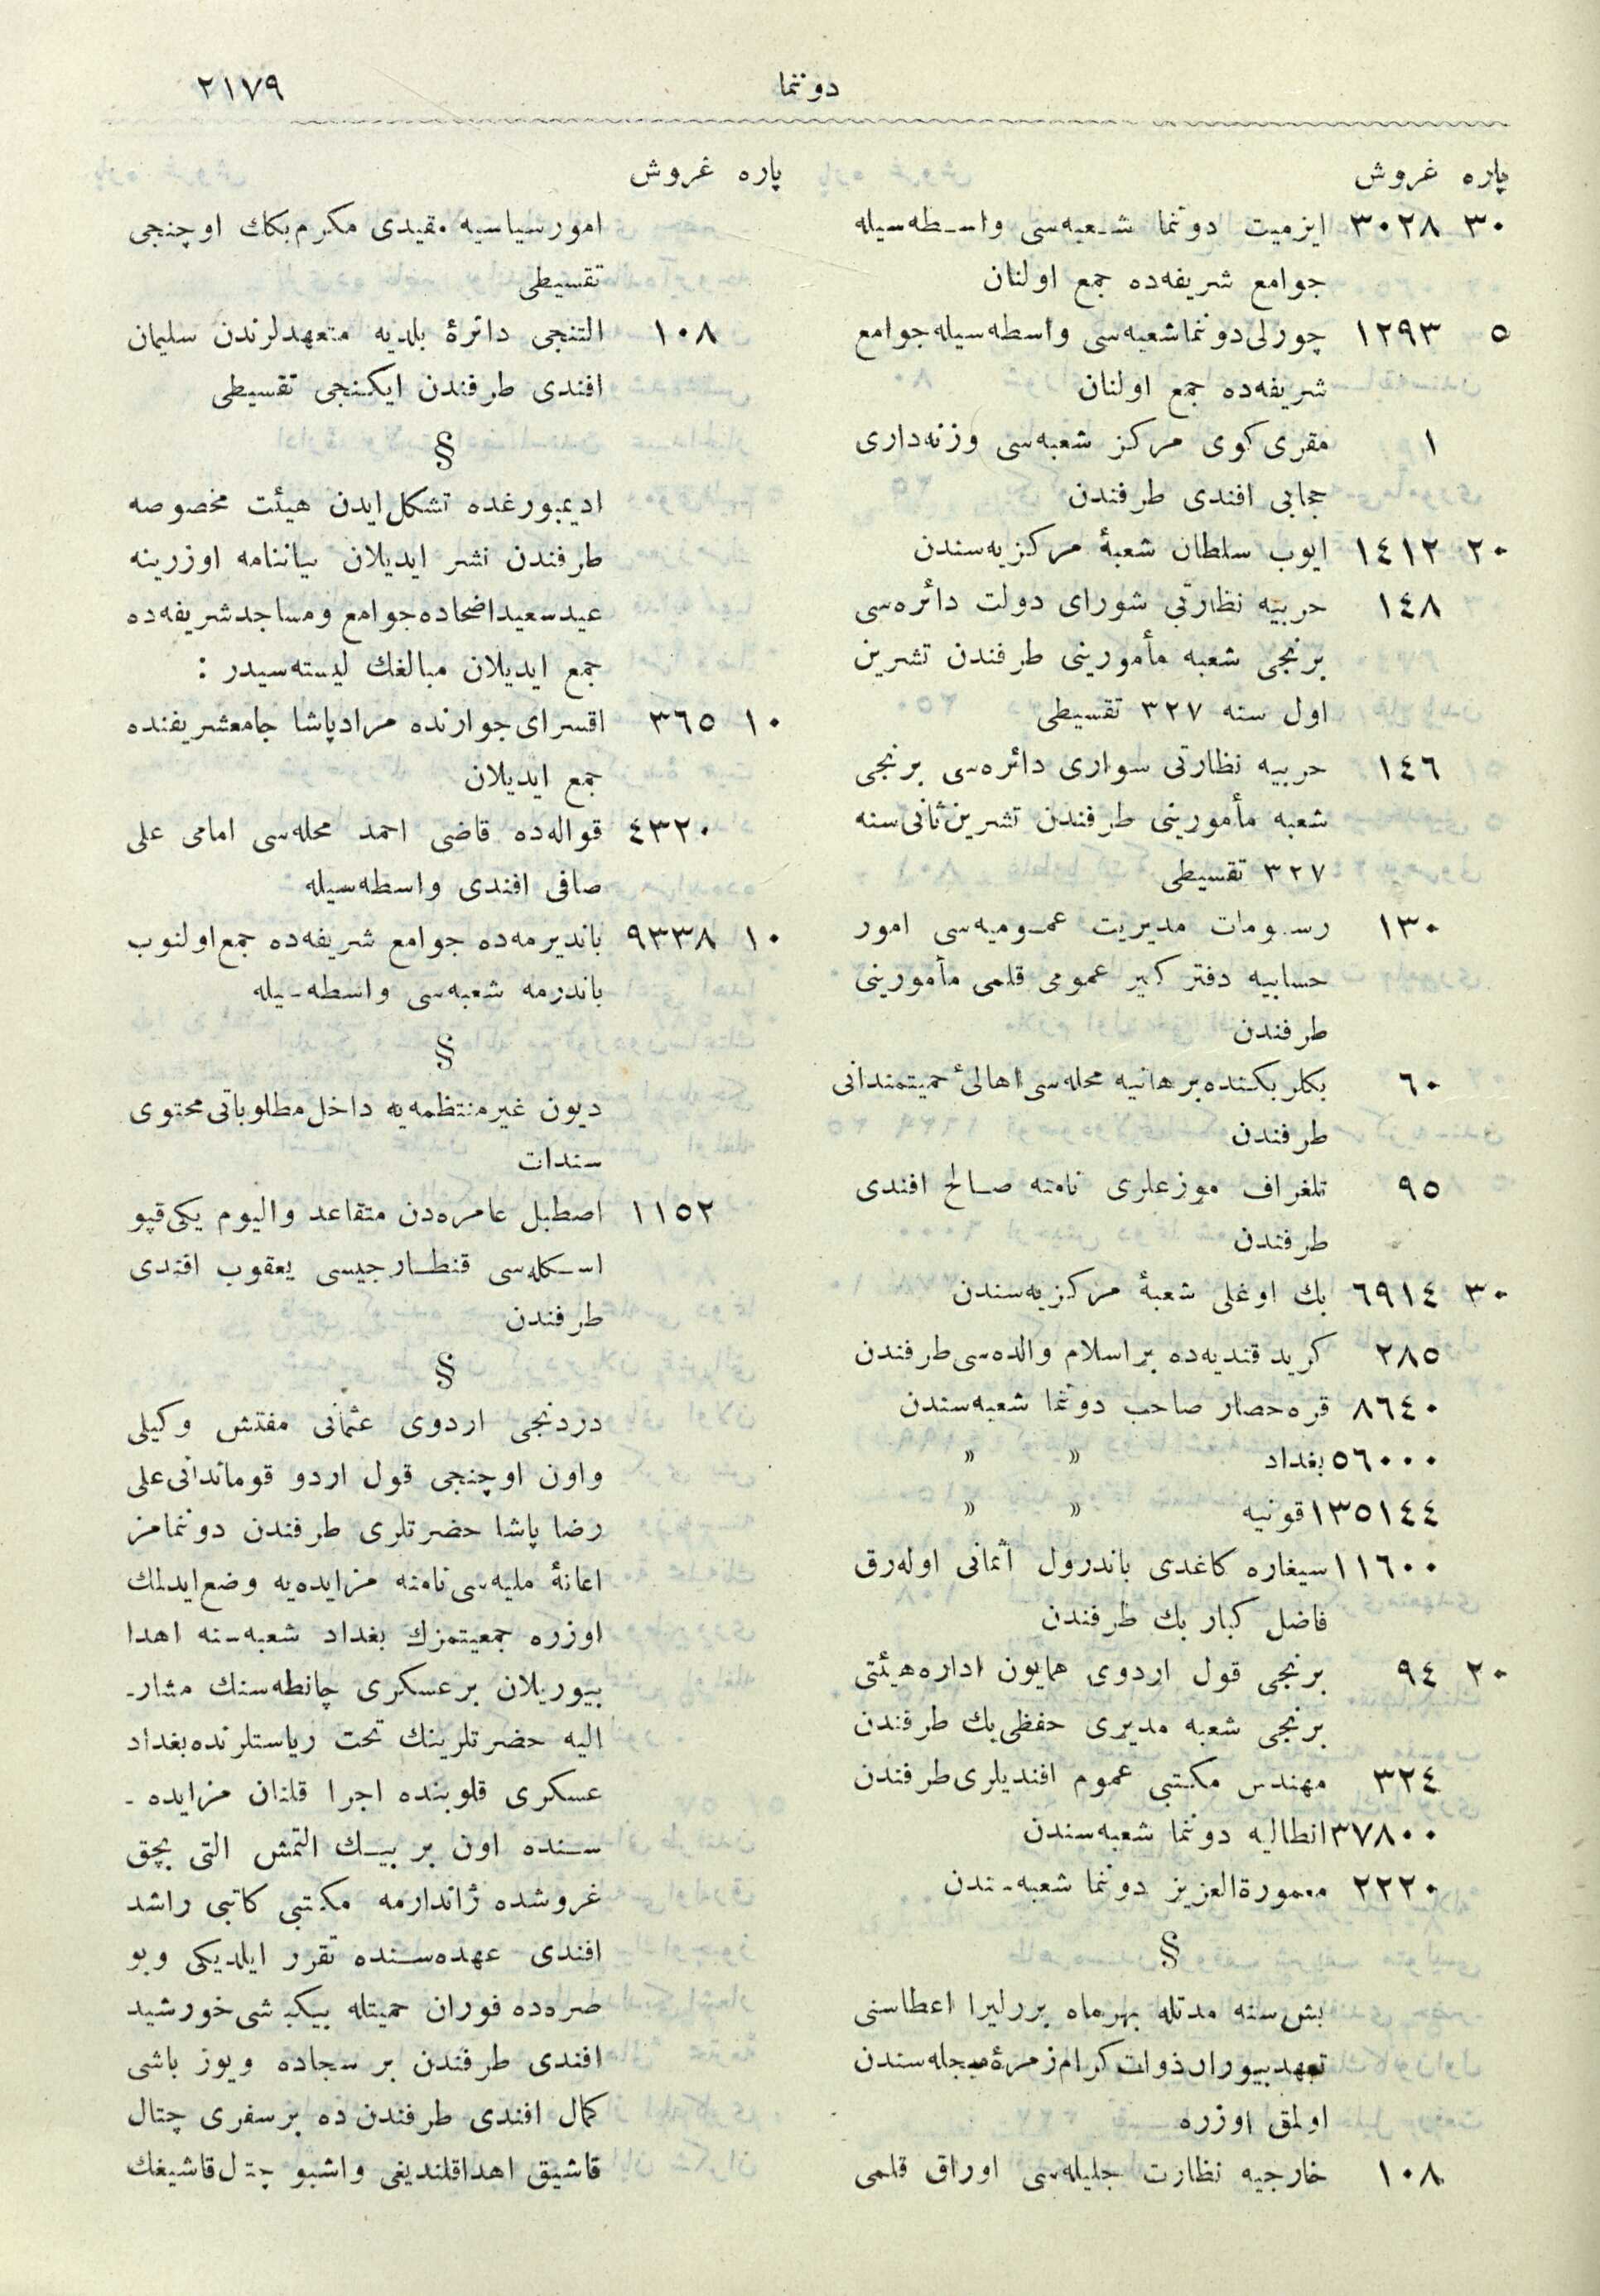 دوننما
٢١٧٩
پاره غروش
٣٠ ٣٠٢٨ ایزمیت دوننما شعبه‌سی واسطه‌سیله
جوامع شریفه‌ده جمع اولنان
٥ ١٢٩٣ چورلی دوننما شعبه‌سی واسطه‌سیله جوامع
شریفه‌ده جمع اولنان
١ مقری کوی مرکز شعبه‌سی وزنه‌داری
حجابی افندی طرفندن
٢٠ ١٤١٢ ایوب سلطان شعبهٔ مرکزیه‌سندن
١٤٨ حربیه نظارتی شورای دولت دائره‌سی
برنجی شعبه مأمورینی طرفندن تشرین
اول سنه ٣٢٧ تقسیطی
١٤٦ حربیه نظارتی سواری دائره‌سی برنجی
شعبه مأمورینی طرفندن تشرین ثانی سنه
٣٢٧ تقسیطی
١٣٠ رسومات مدیریت عمومیه‌سی امور
حسابیه دفتر کبیر عمومی قلمی مأمورینی
طرفندن
٦٠ بکلربکنده برهانیه محله‌سی اهالیٔ حمیتمندانی
طرفندن
٩٥ تلغراف موزعلری نامنه صالح افندی
طرفندن
٣٠ ٦٩١٤ بك اوغلی شعبهٔ مرکزیه‌سندن
٢٨٥ کرید قندیه‌ده بر اسلام والده‌سی طرفندن
٨٦٤٠ قره‌حصار صاحب دوننما شعبه‌سندن
٥٦٠٠٠ بغداد » »
١٣٥١٤٤ قونیه » »
١١٦٠٠ سیغاره کاغدی باندرول أثمانی اوله‌رق
فاضل کبار بك طرفندن
٢٠ ٩٤ برنجی قول اردوی همایون اداره هیئتی
برنجی شعبه مدیری حفظی بك طرفندن
٣٢٤ مهندس مکتبی عموم افندیلری طرفندن
٣٧٨٠٠ انطالیه دوننما شعبه‌سندن
٢٢٢٠ معمورةالعزیز دوننما شعبه‌سندن
§
بش سنه مدتله بهرماه بررلیرا اعطاسنی
تعهد بیوران ذوات کرام زمرهٔ مبجله‌سندن
اولمق اوزره
١٠٨ خارجیه نظارت جلیله‌سی اوراق قلمی
پاره غروش
امور سیاسیه مقیدی مکرم بکك اوچنجی
تقسیطی
١٠٨ التنجی دائرهٔ بلدیه متعهدلرندن سلیمان
افندی طرفندن ایکنجی تقسیطی
§
ادیمبورغده تشکل ایدن هیئت مخصوصه
طرفندن نشر ایدیلان بیاننامه اوزرینه
عید سعید اضحاده جوامع ومساجد شریفه‌ده
جمع ایدیلان مبالغك لیسته‌سیدر :
١٠ ٣٦٥ اقسرای جوارنده مرادپاشا جامعشریفنده
جمع ایدیلان
٤٣٢٠ قواله‌ده قاضی احمد محله‌سی امامی علی
صافی افندی واسطه‌سیله
١٠ ٩٣٣٨ باندیرمه‌ده جوامع شریفه‌ده جمع اولنوب
باندرمه شعبه‌سی واسطه‌سیله
§
دیون غیر منتظمه‌یه داخل مطلوباتی محتوی
سندات
١١٥٢ اصطبل عامره‌دن متقاعد والیوم یکی قپو
اسکله‌سی قنطارجیسی یعقوب افندی
طرفندن
§
دردنجی اردوی عثمانی مفتش وکیلی
واون اوچنجی قول اردو قوماندانی علی
رضا پاشا حضرتلری طرفندن دوننمامز
اعانهٔ ملیه‌سی نامنه مزایده‌یه وضع ایدلمك
اوزره جمعیتمزك بغداد شعبه‌سنه اهدا
بیوریلان بر عسکری چانطه‌سنك مشار-
الیه حضرتلرینك تحت ریاستلرنده بغداد
عسکری قلوبنده اجرا قلنان مزایده -
سنده اون بر بیك التمش التی بچق
غروشده ژاندارمه مکتبی کاتبی راشد
افندی عهده‌سنده تقرر ایلدیکی وبو
صره‌ده فوران حمیتله بیکباشی خورشید
افندی طرفندن بر سجاده ویوز باشی
کمال افندی طرفندن ده بر سفری چتال
قاشیق اهدا قلندیغی واشبو چتال قاشیغك